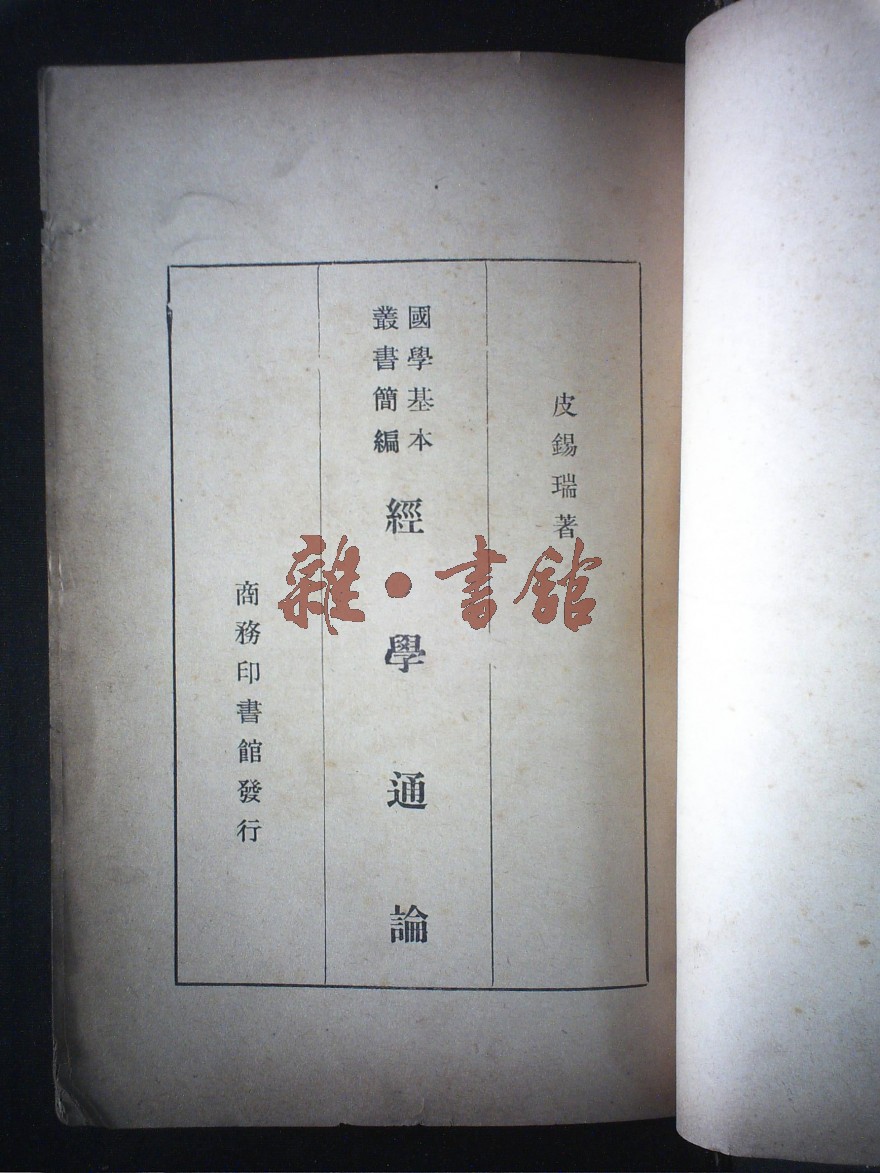 皮錫瑞著
國學基本
叢書簡編
經學通論
商務印書館發行
雜·書館